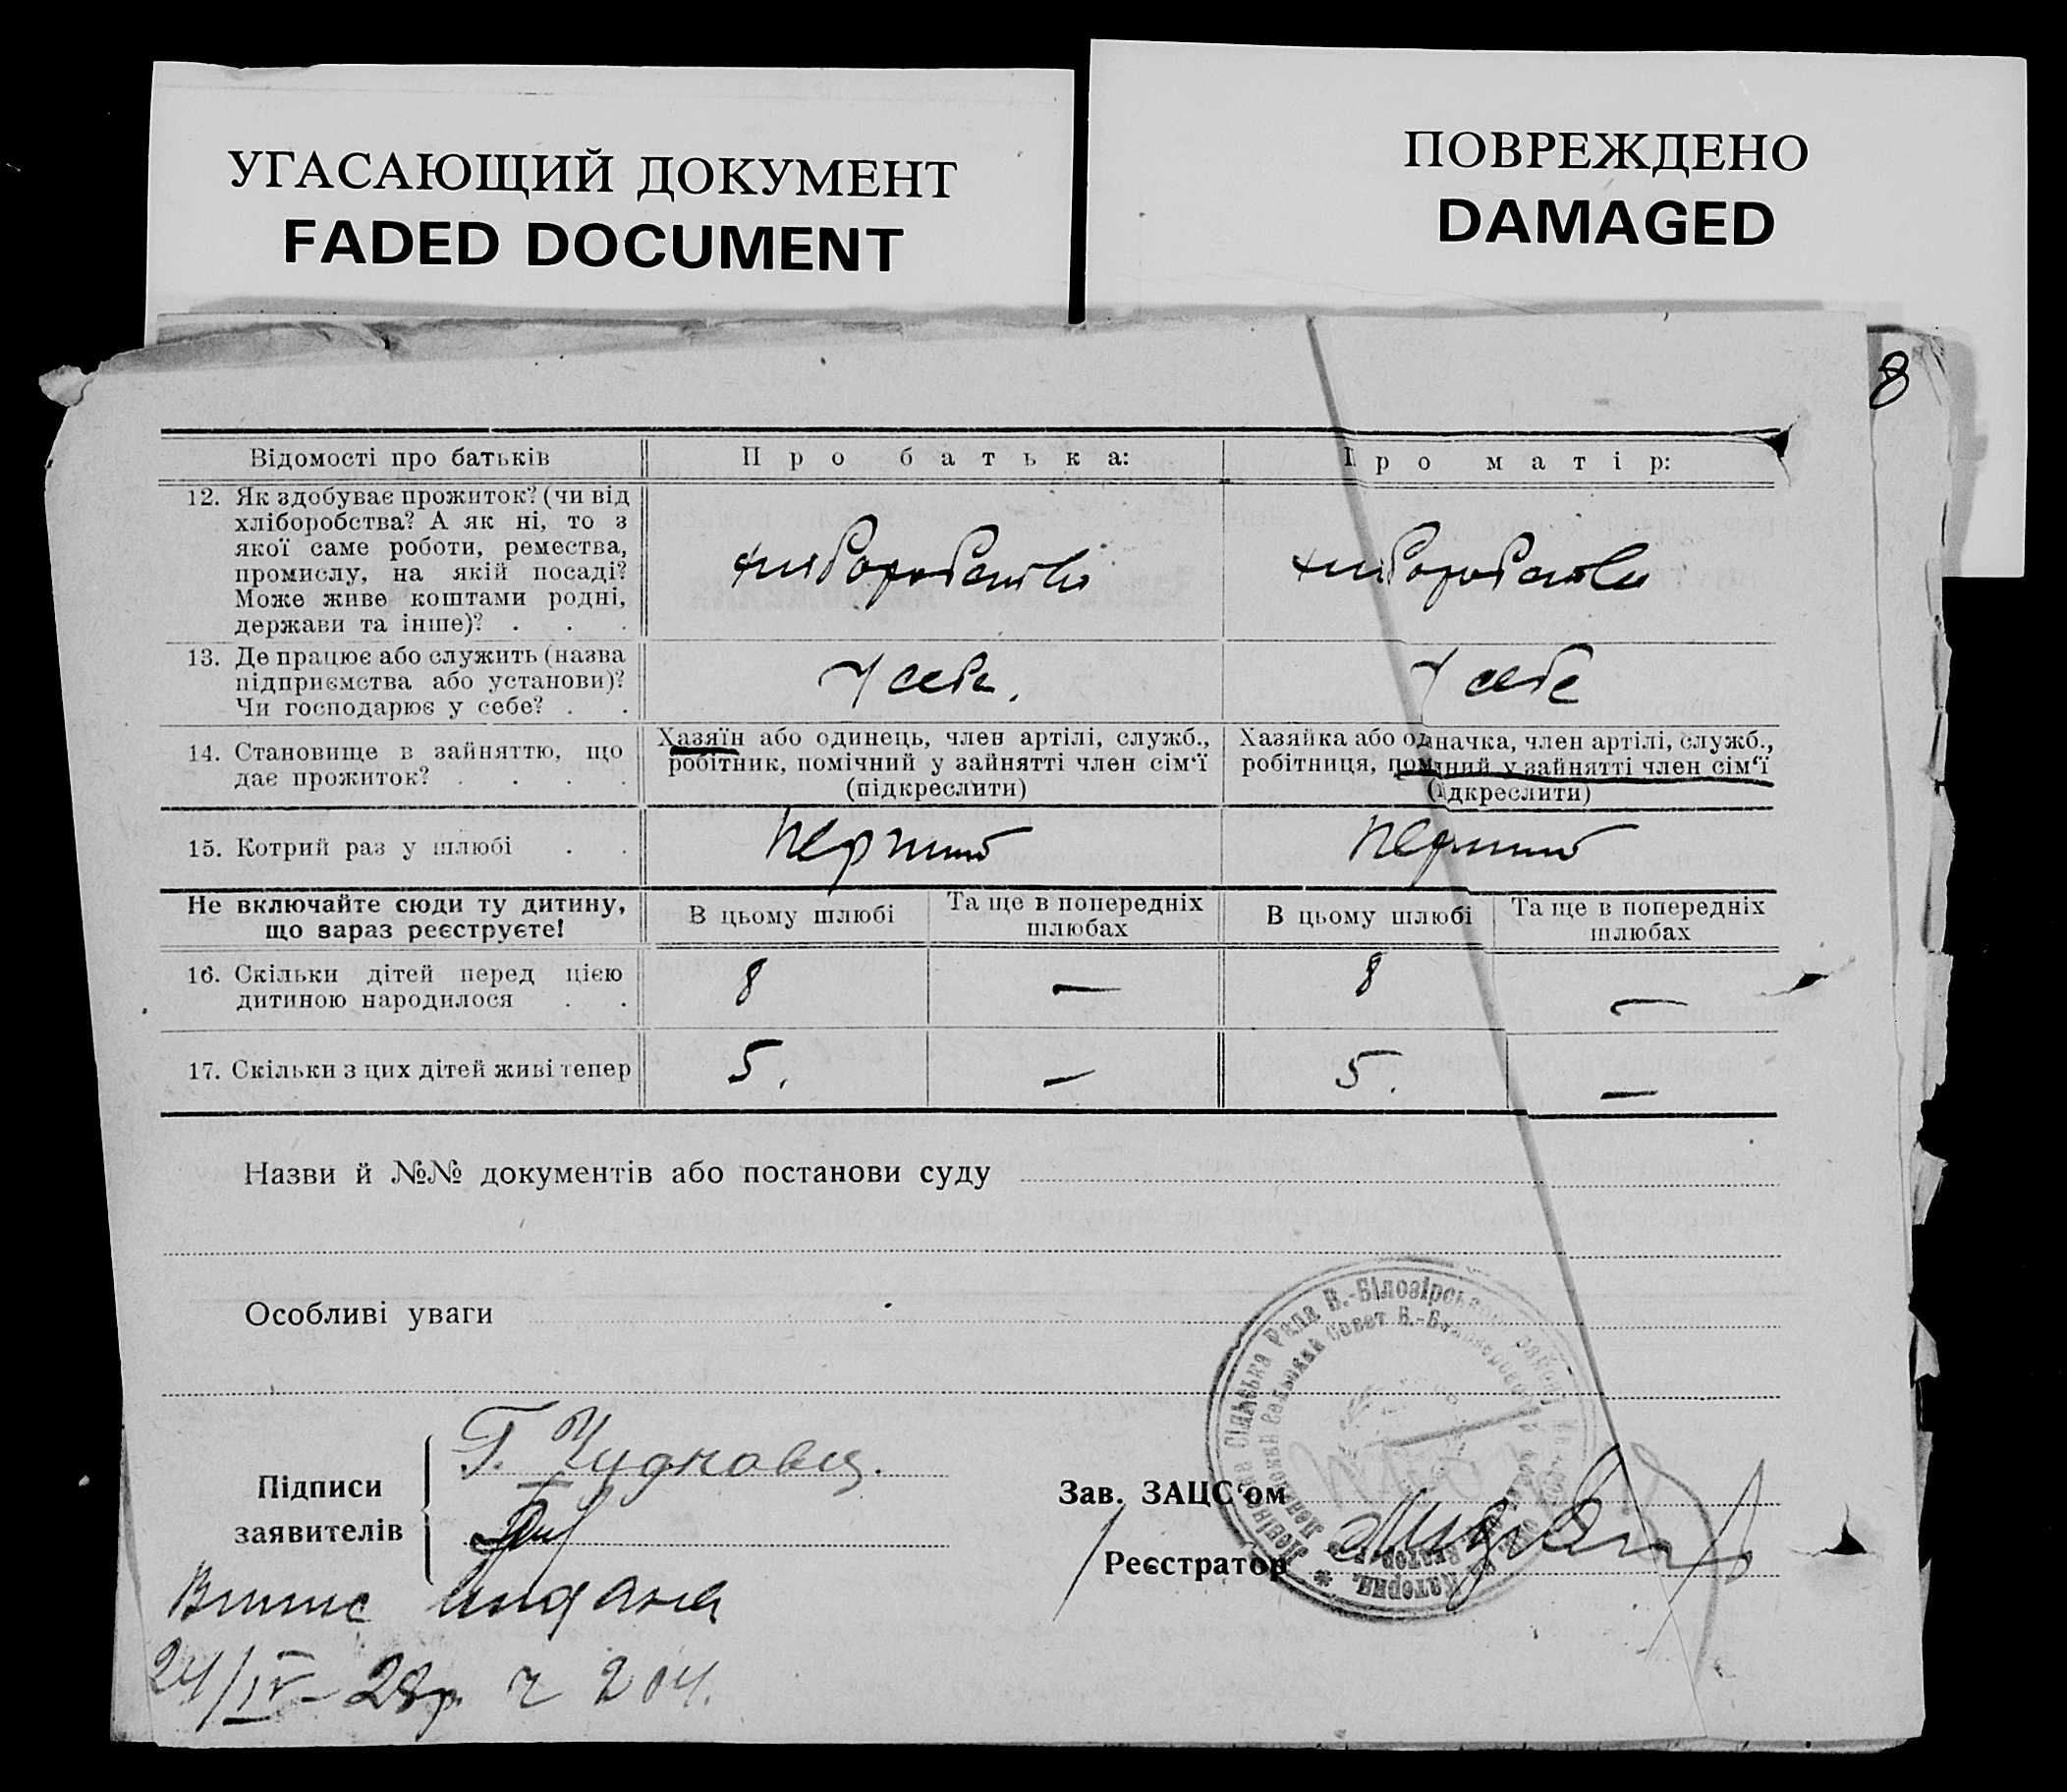 УГАСАЮЩИЙ ДОКУМЕНТ
FADED DOCUMENT
ПОВРЕЖДЕНО
DAMAGED
8
Відомості про батьків
Про батька:
Про матір:
12. Як здобуває прожиток? (чи від
хліборобства? А як ні, то з
якої саме роботи, ремества,
промислу, на якій посаді?
Може живе коштами родні,
держави та інше)? . . .
хлиборобство
хлиборобство
13. Де працює або служить (назва
підприємства або установи)?
Чи господарює у себе? . .
У себе.
У себе
14. Становище в зайняттю, що
дає прожиток? . . . .
Хазяїн або одинець, член артілі, служб.,
робітник, помічний у зайнятті член сім'ї
(підкреслити)
Хазяйка або одначка, член артілі, служб.,
робітниця, помічний у зайнятті член сім'ї
(підкреслити)
15. Котрий раз у шлюбі . .
перший
перший
Не включайте сюди ту дитину,
що зараз реєструєте!
В цьому шлюбі
Та ще в попередніх
шлюбах
В цьому шлюбі
Та ще в попередніх
шлюбах
16. Скільки дітей перед цією
дитиною народилося . .
8
—
8
—
17. Скільки з цих дітей живі тепер
5.
—
5.
—
Назви й №№ документів або постанови суду
Особливі уваги
Підписи
заявителів
Г. Чудновец.
Зав. ЗАЦС'ом
Реєстратор
Сільська Рада В.-Білозірського району
Сельский Совет В.-Белозерского
Випис видана
24/IV-28р. ч 204.